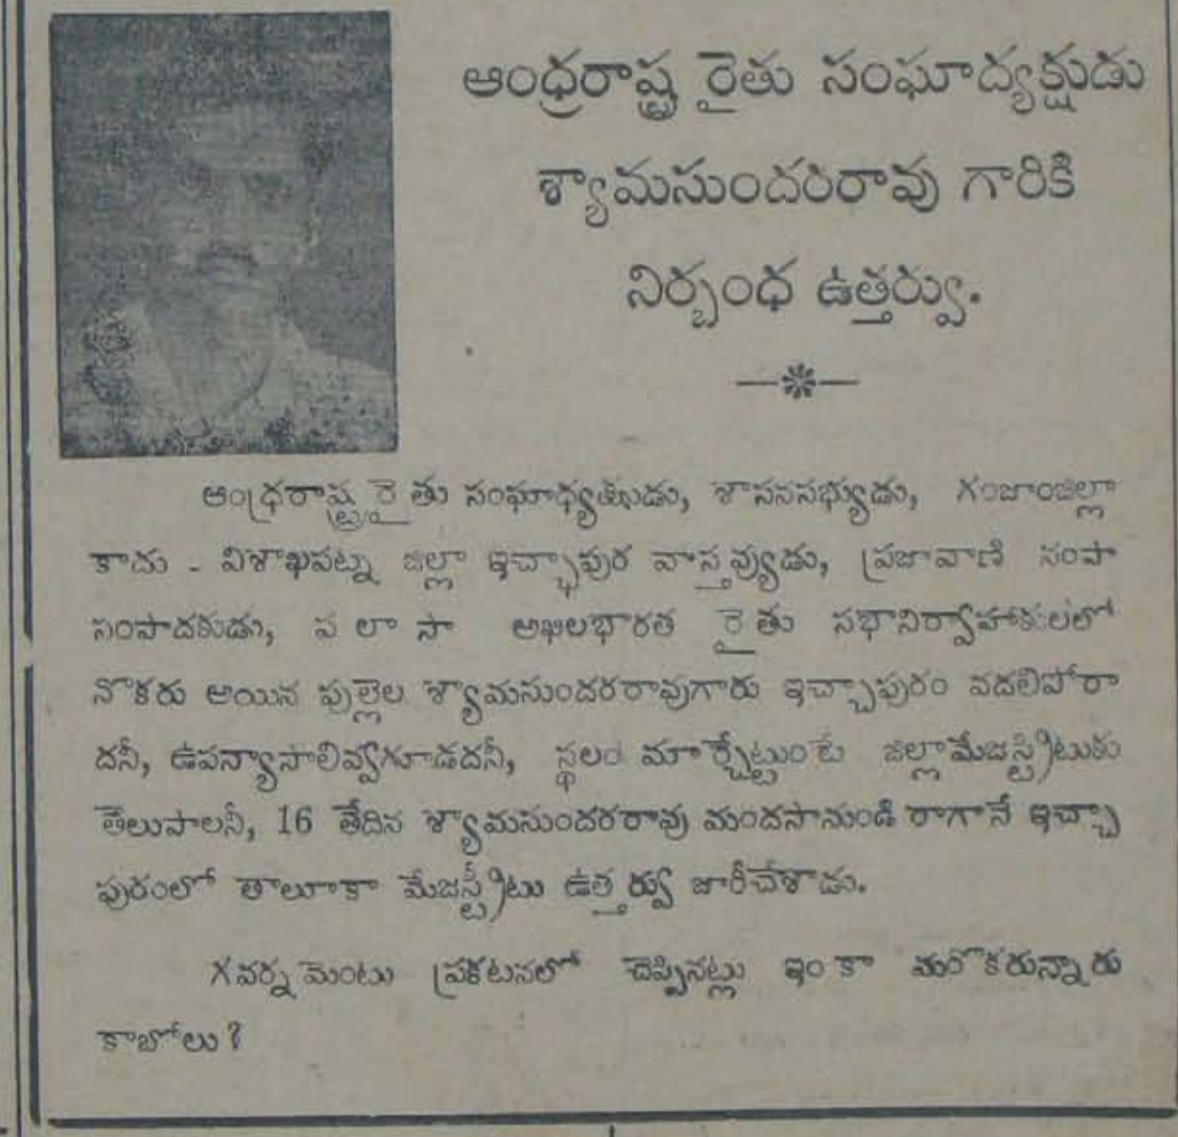 ఆంధ్రరాష్ట్ర రైతు సంఘాద్యక్షుడు
శ్యామసుందరరావు గారికి
నిర్బంధ ఉత్తర్వు.
ఆంధ్రరాష్ట్ర రైతు సంఘాధ్యక్షుడు, శాసనసభ్యుడు, గంజాంజిల్లా
కాదు - విశాఖపట్న జిల్లా ఇచ్ఛాపుర వాస్తవ్యుడు, ప్రజావాణి సంపా
సంపాదకుడు, పలాసా అఖిలభారత రైతు సభానిర్వాహకులలో
నొకరు అయిన పుల్లెల శ్యామసుందరరావుగారు ఇచ్ఛాపురం వదలిపోరా
దనీ, ఉపన్యాసాలివ్వగూడదనీ, స్థలం మార్చేట్టుంటే జిల్లామేజస్ట్రిటుకు
తెలుపాలనీ, 16 తేదిన శ్యామసుందరరావు మందసానుండి రాగానే ఇచ్ఛా
పురంలో తాలూకా మేజస్ట్రీటు ఉత్తర్వు జారీచేశాడు.
గవర్నమెంటు ప్రకటనలో చెప్పినట్లు ఇంకా మరొకరున్నారు
కాబోలు?